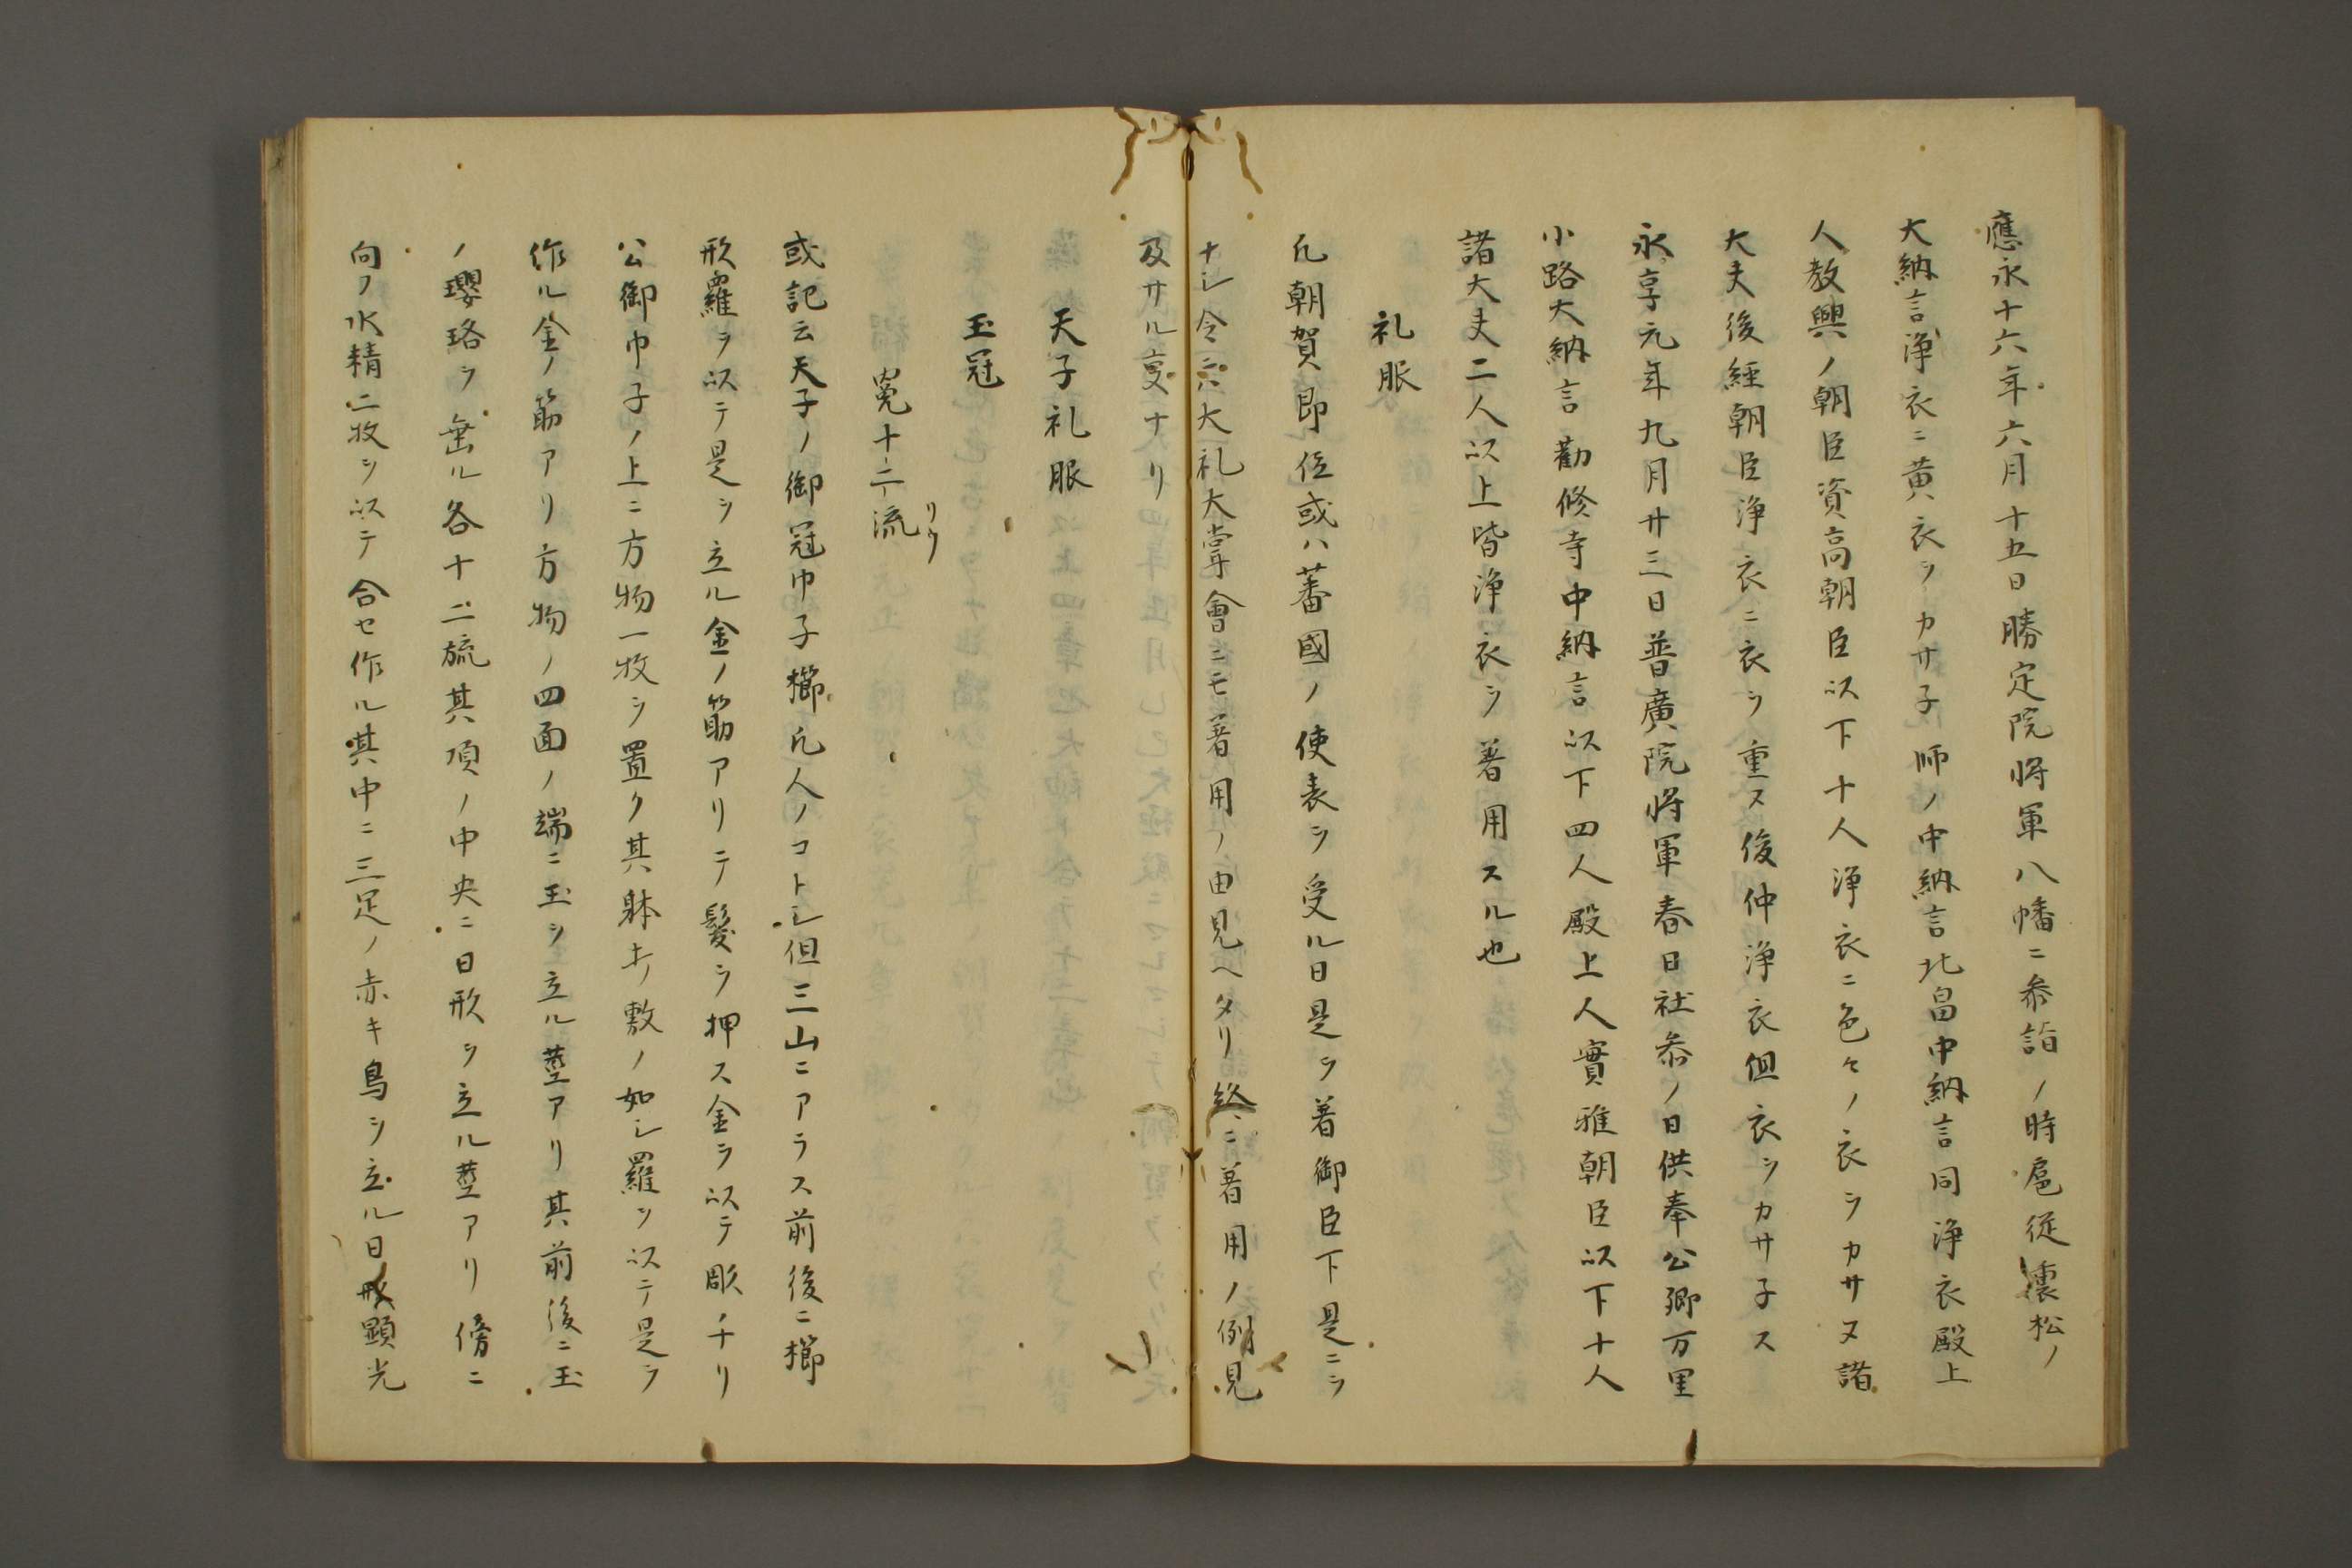 應永十六年六月十五日勝定院将軍八幡ニ参詣ノ時扈従裏松ノ
大納言浄衣ニ黄衣ヲカサ子師ノ中納言北畠中納言同浄衣殿上
人教興ノ朝臣資高朝臣以下十人浄衣ニ色々ノ衣ヲカサヌ諸
大夫後経朝臣浄衣ニ衣ヲ重ス後仲浄衣但衣ヲカサ子ス
永享元年九月廿三日普廣院将軍春日社参ノ日供奉公卿万里
小路大納言勸修寺中納言以下四人殿上人實雅朝臣以下十人
諸大夫二人以上皆浄衣ヲ著用スル也
礼服
凢朝賀即位或ハ蕃國ノ使表ヲ受ル日是ヲ着御臣下是ニシ
ナシ令ニハ大礼大甞會ニモ著用ノ由見ヘタリ終ニ着用ノ例見
及サル㕝ナリ
天子礼服
玉冠
冕十二流リウ
或記云天子ノ御冠巾子櫛凢人ノコトシ但三山ニアラス前後ニ櫛
形羅ヲ以テ是ヲ立ル金ノ筋アリテ髪ヲ押ス金ヲ以テ彫ノチリ
公御巾子ノ上ニ方物一牧ヲ置ク其躰キノ敷ノ如シ羅ヲ以テ是ヲ
作ル金ノ筋アリ方物ノ四面ノ端ニ玉ヲ立ル莖アリ其前後ニ玉
ノ瓔珞ヲ埀ル各十二旒其頂ノ中央ニ日形ヲ立ル莖アリ傍ニ
向フ水精二牧ヲ以テ合セ作ル其中ニ三足ノ赤キ鳥ヲ立ル日形顕光